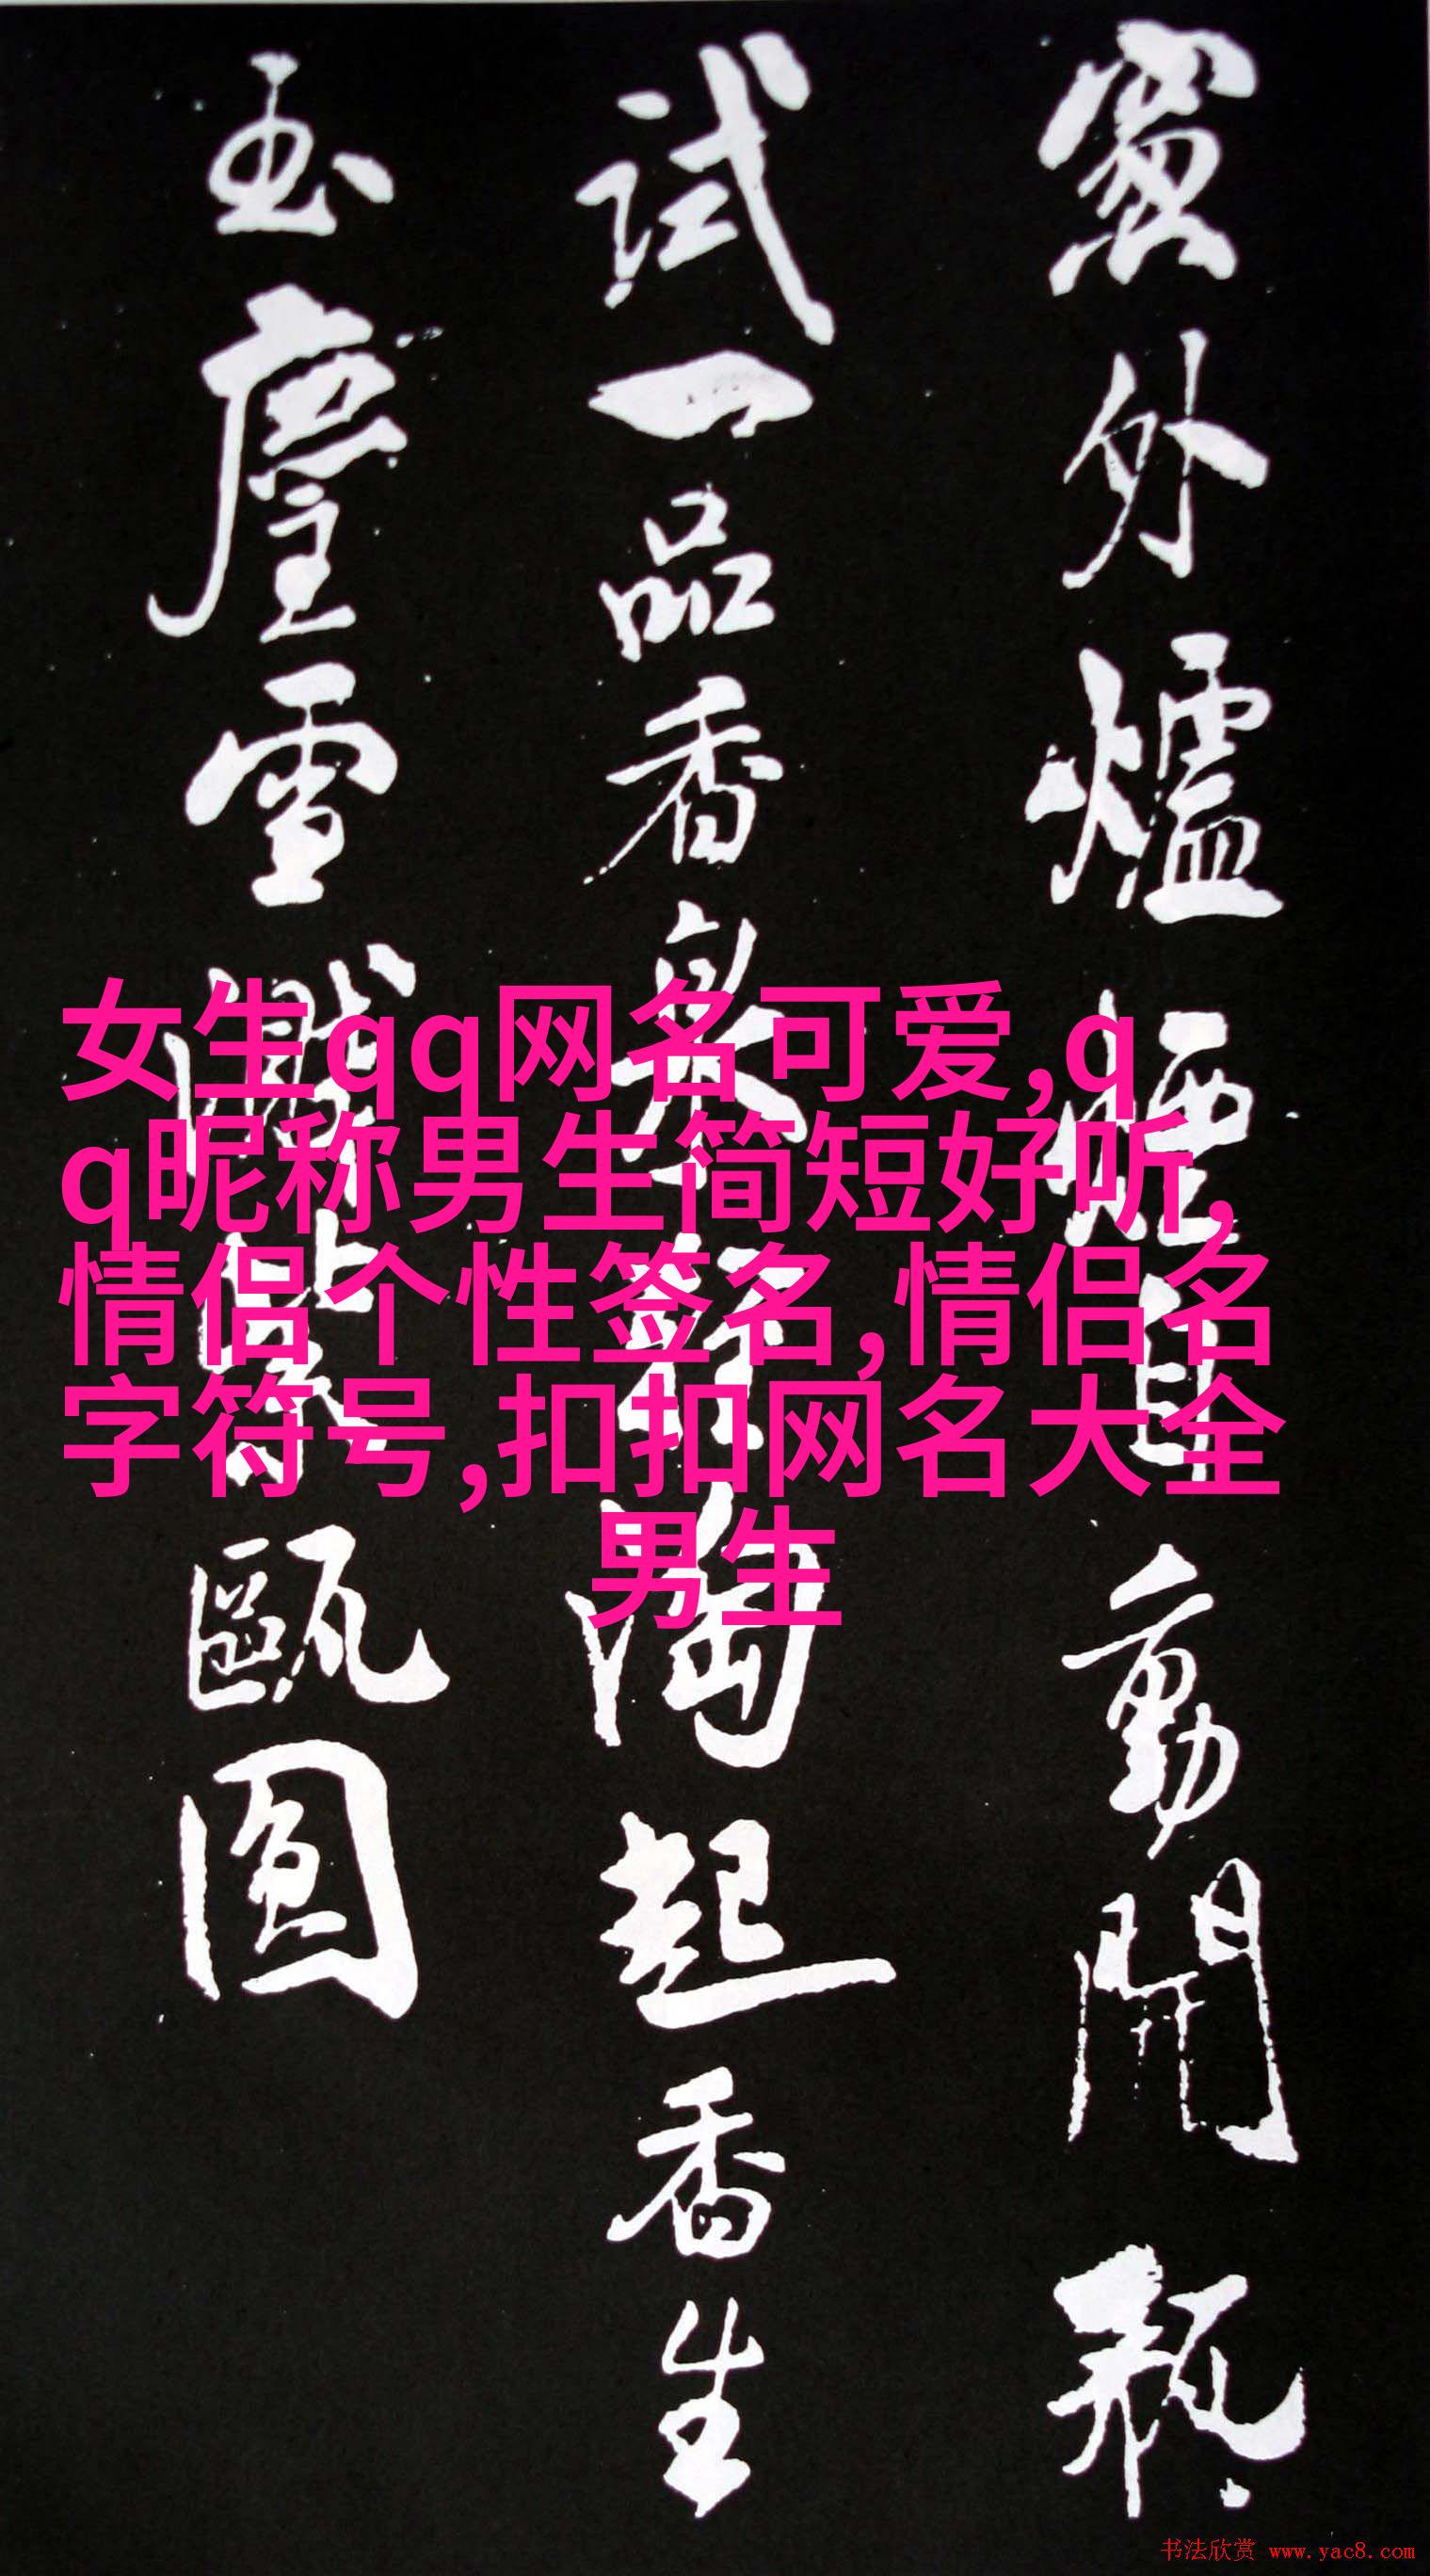 窻外爐煙自動開瓶
試一品香泉輕起香生
玉塵雪濺紫甌圓
女生qq网名可爱,q
q昵称男生简短好听,
情侣个性签名,情侣名
字符号,扣扣网名大全
男生
书法欣赏 www.yac8.com